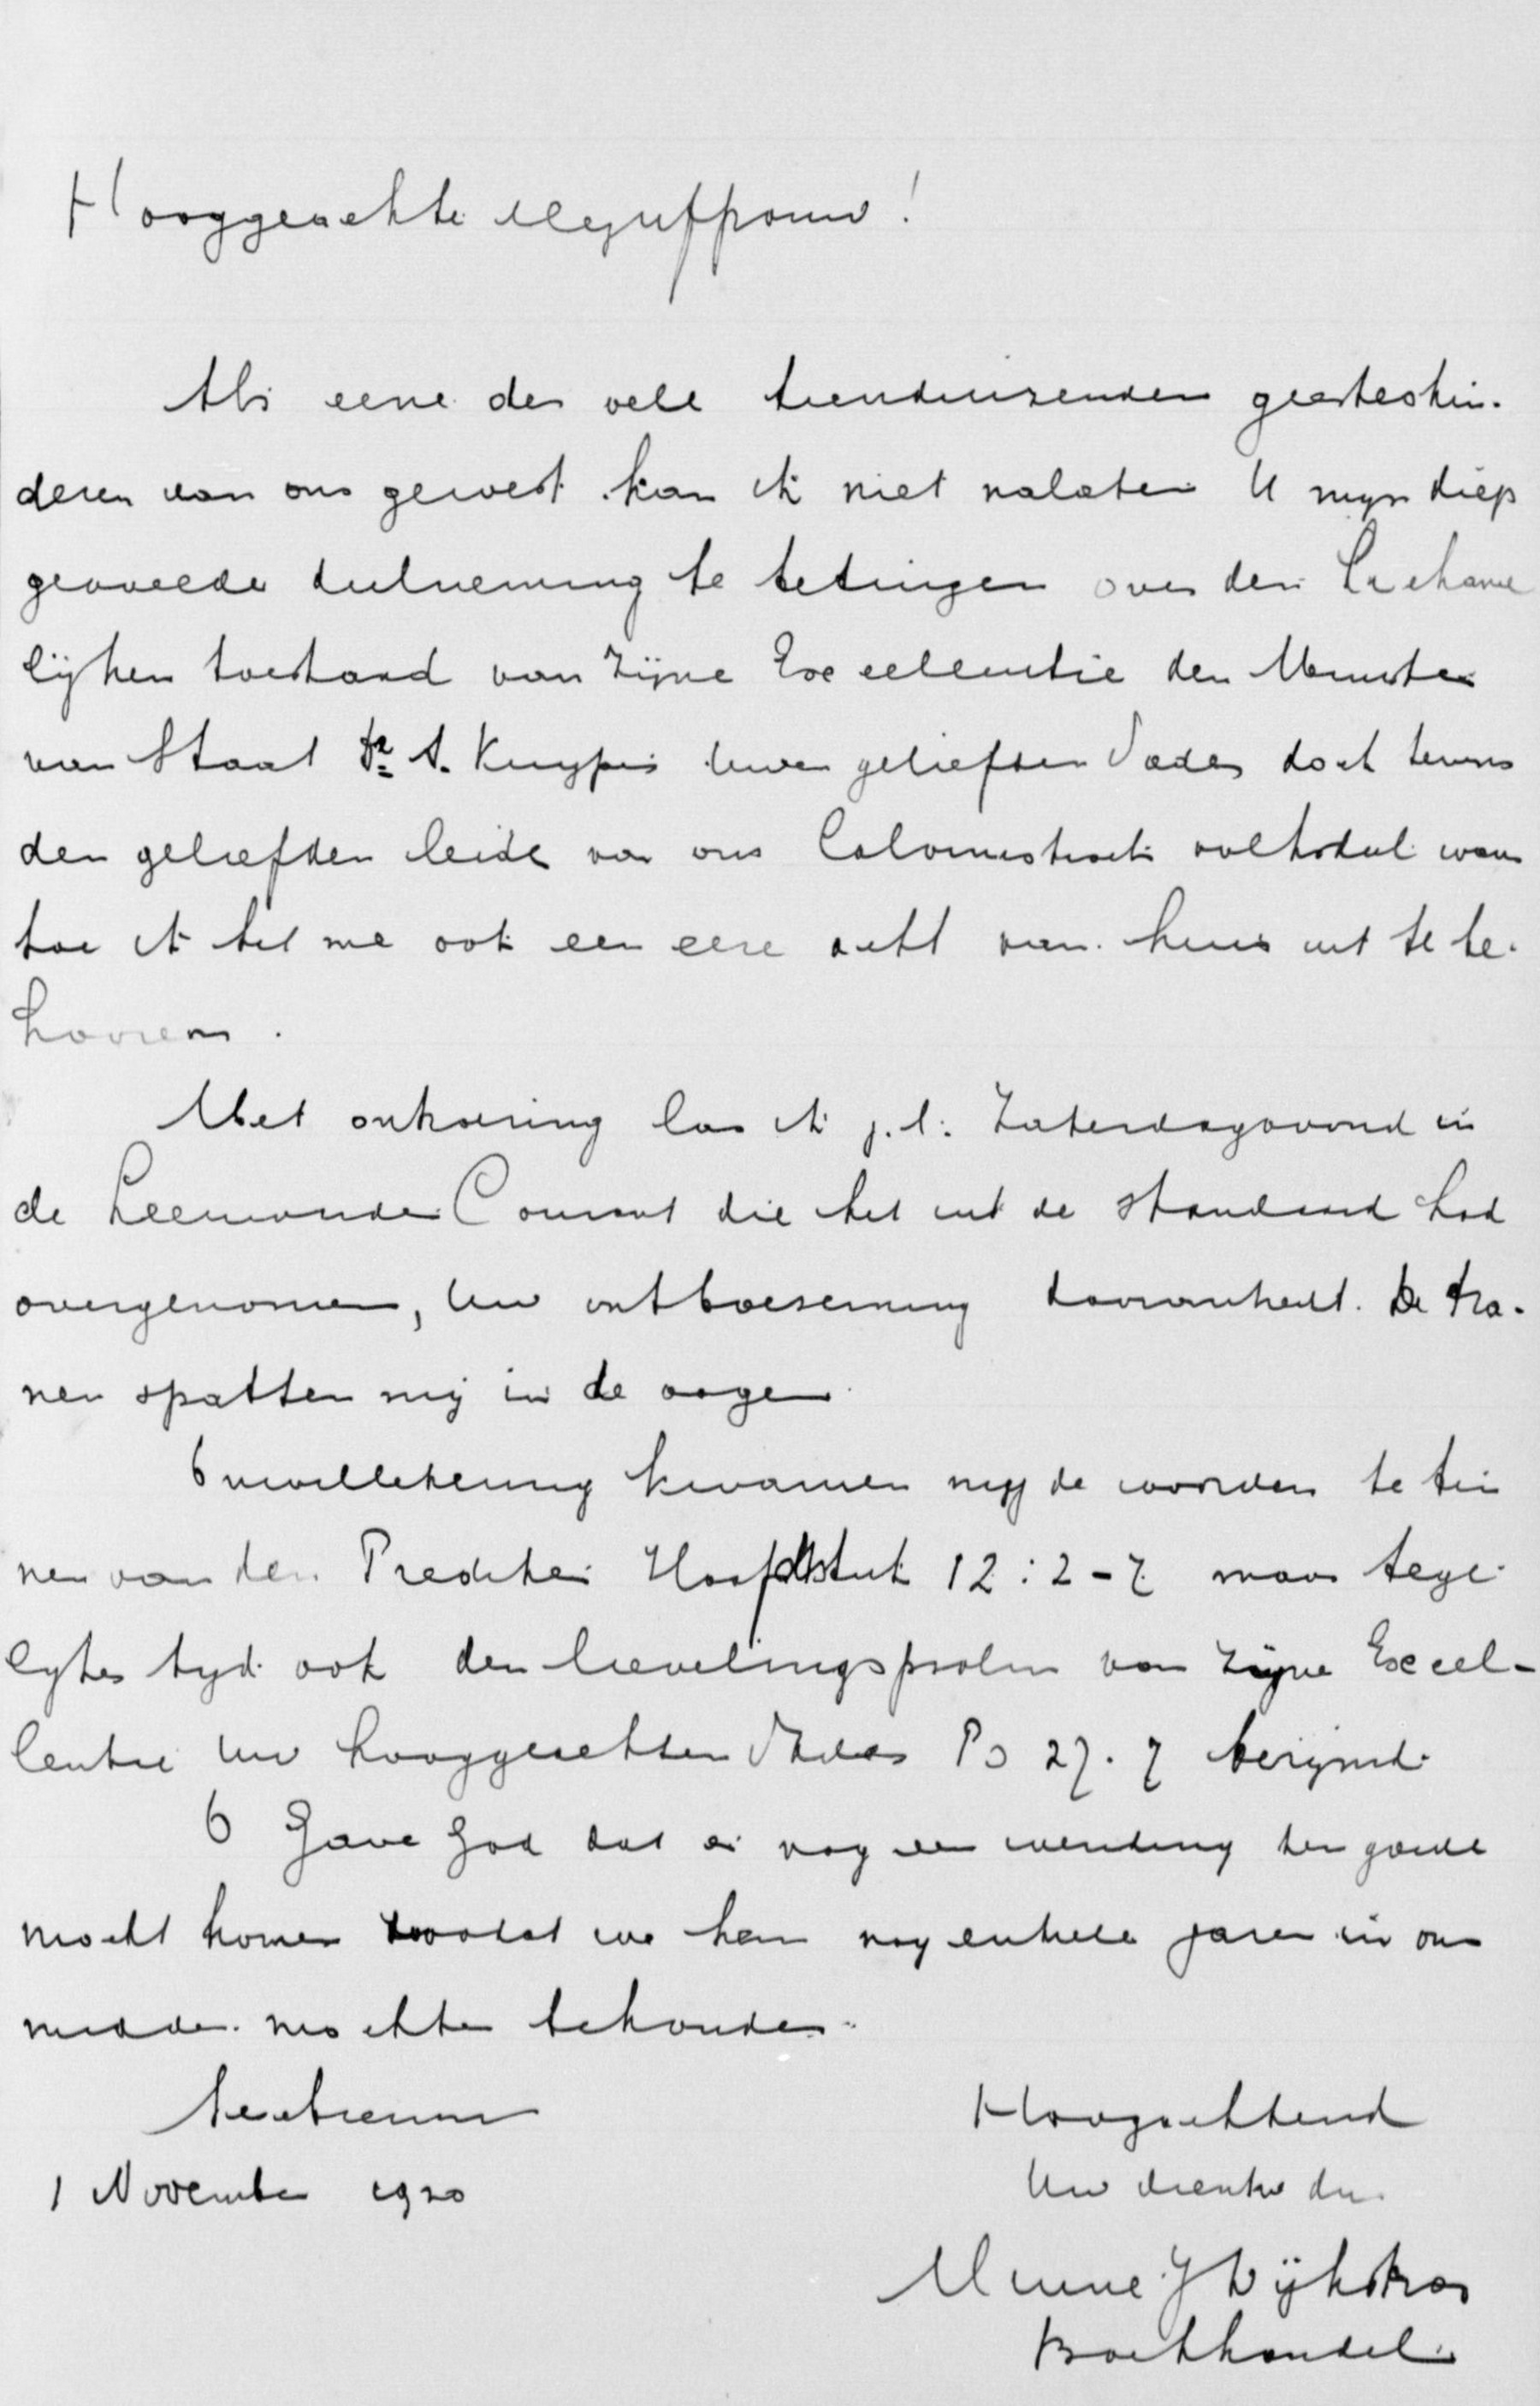 Hooggeachte Mejuffrouw!
Als eene der vele tienduizenden geesteskin-
deren van ons gewest kan ik niet nalaten U mijn diep
gevoelde deelneming te betuigen over den lichame
lijken toestand van Zijne Excellentie den Minister
van Staat Dr. A. Kuyper Uwen geliefden Vader doch tevens
den geliefden leider van ons Calvinistisch volksdeel waar
toe ik het me ook een eere acht van huis uit te be-
hooren.
Met ontroering las ik j.l. Zaterdagavond in
de Leeuwarder Courant die het uit de Standaard had
overgenomen, Uw ontboezeming daaromtrent. De tra-
nen spatten mij in de oogen.
Onwillekeurig kwamen mij de woorden te bin
nen van den Prediker Hoofdstuk 12:2-7 maar tege-
lijker tijd ook den lievelingspsalm van Zijne Excel-
lentie Uw hooggeachten Vader Ps 27.7 berijmd.
O Gave God dat er nog een wending ten goede
mocht komen zoodat we hem nog enkele jaren in ons
midden mochten behouden.
Hoogachtend
1 November 1920
Uw dienstw dr.
Minne J Dijkstra
Boekhandel